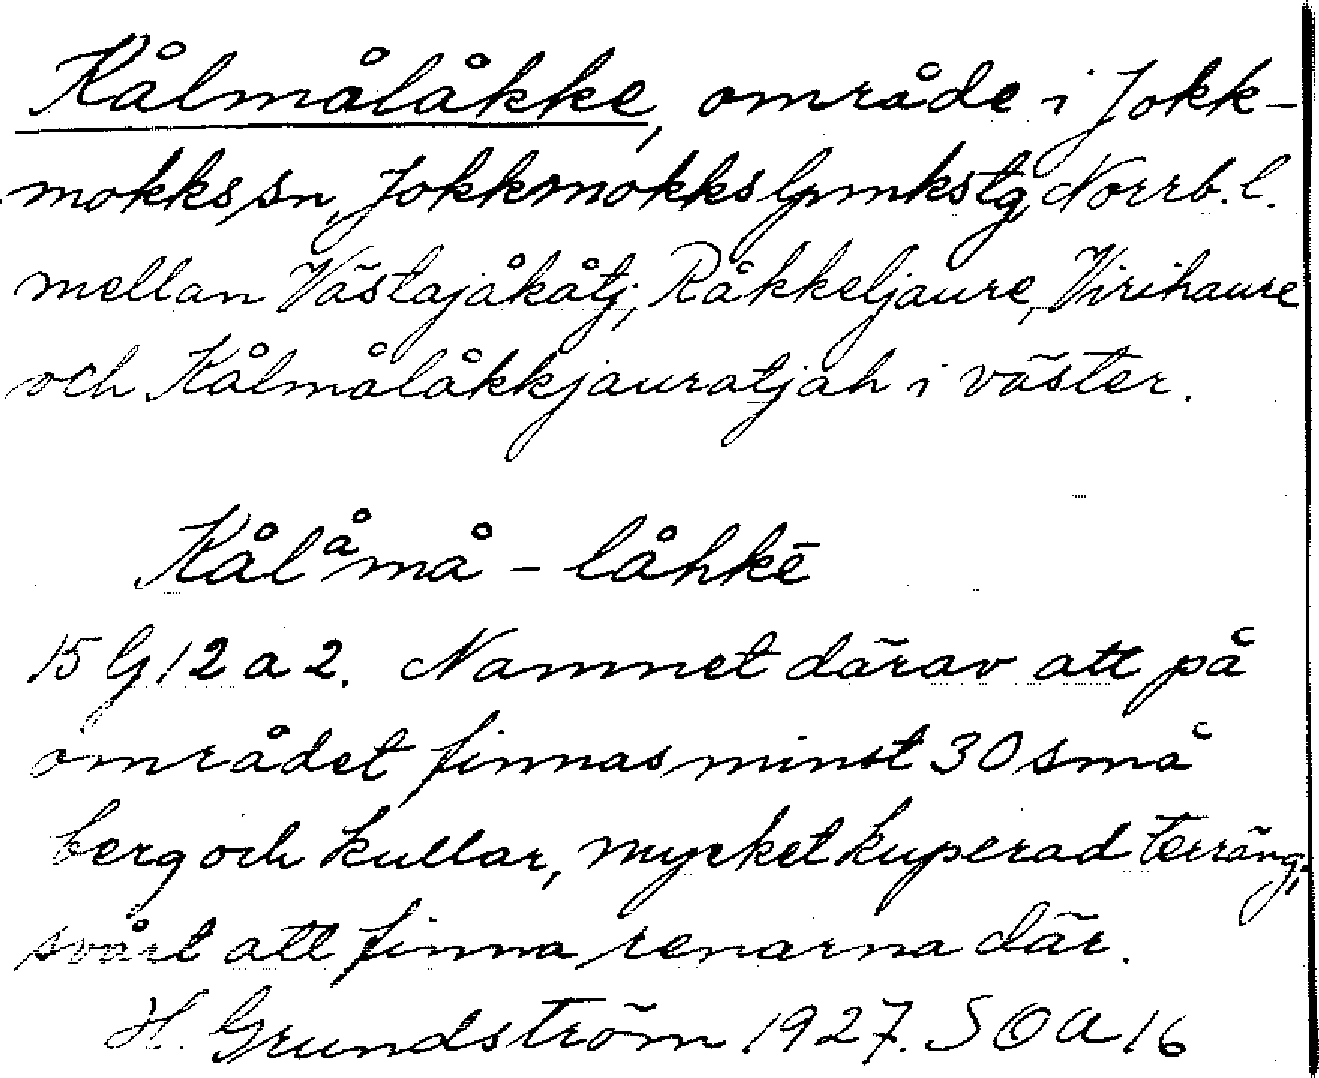 Kålmålåkke, område i Jokk-
mokks sn, Jokkmokks lpmkstg, Norrb. l.
mellan Västajåkåtj, Råkkeljaure, Virihaure
och Kålmålåkkjauratjah i väster.
Kålåmå - låhkē
15 G 12 a 2. Namnet därav att på
området finnas minst 30 små
berg och kullar, mycket kuperad terräng,
svårt att finna renarna där.
H. Grundström 1927. SOA 16